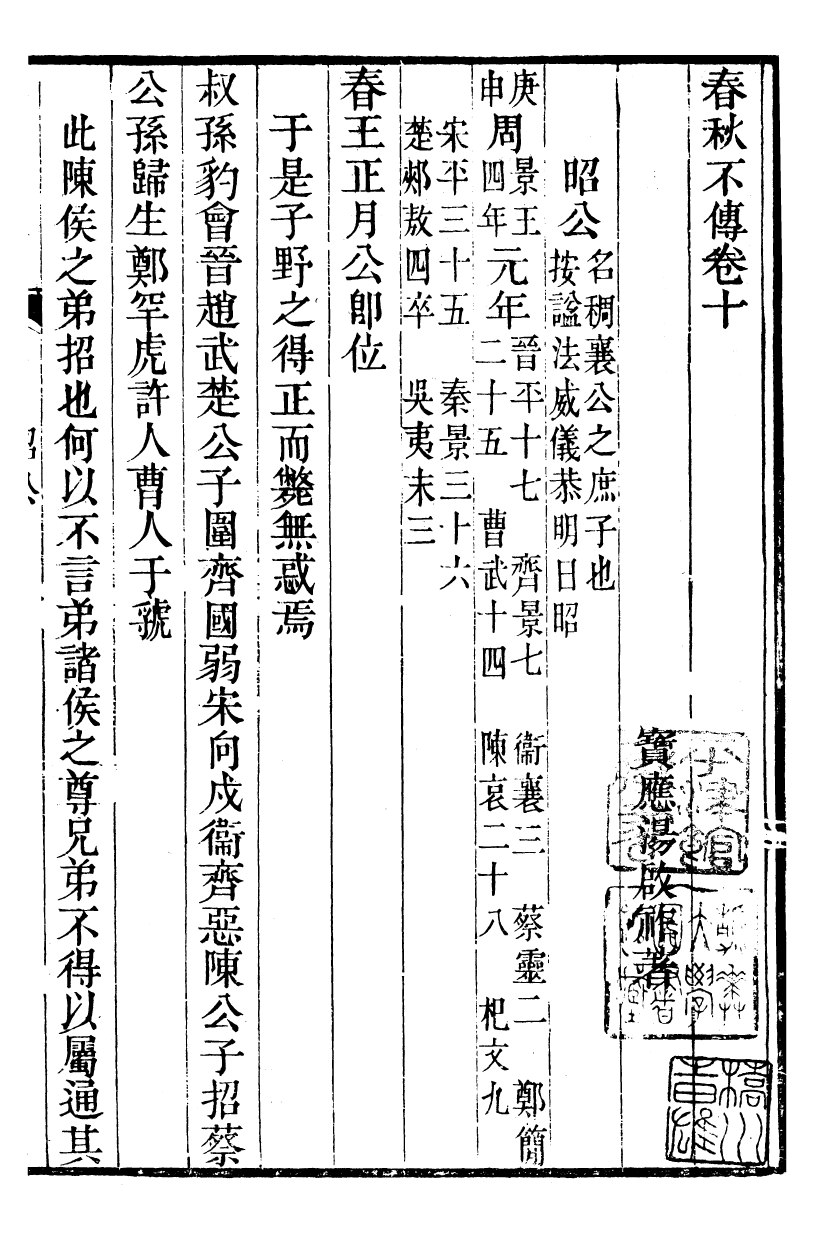 春秋不傳卷十
寶應湯啟祚著
昭公 名稠襄公之庶子也
按諡法威儀恭明曰昭
庚申 周景王四年 元年 晉平十七 齊景七 衞襄三 蔡靈二 鄭簡
二十五 曹武十四 陳哀二十八 杞文九
宋平三十五 秦景三十六
楚郟敖四卒 吳夷末三
春王正月公卽位
于是子野之得正而斃無惑焉
叔孫豹會晉趙武楚公子圍齊國弱宋向戌衞齊惡陳公子招蔡
公孫歸生鄭罕虎許人曹人于虢
此陳侯之弟招也何以不言弟諸侯之尊兄弟不得以屬通其